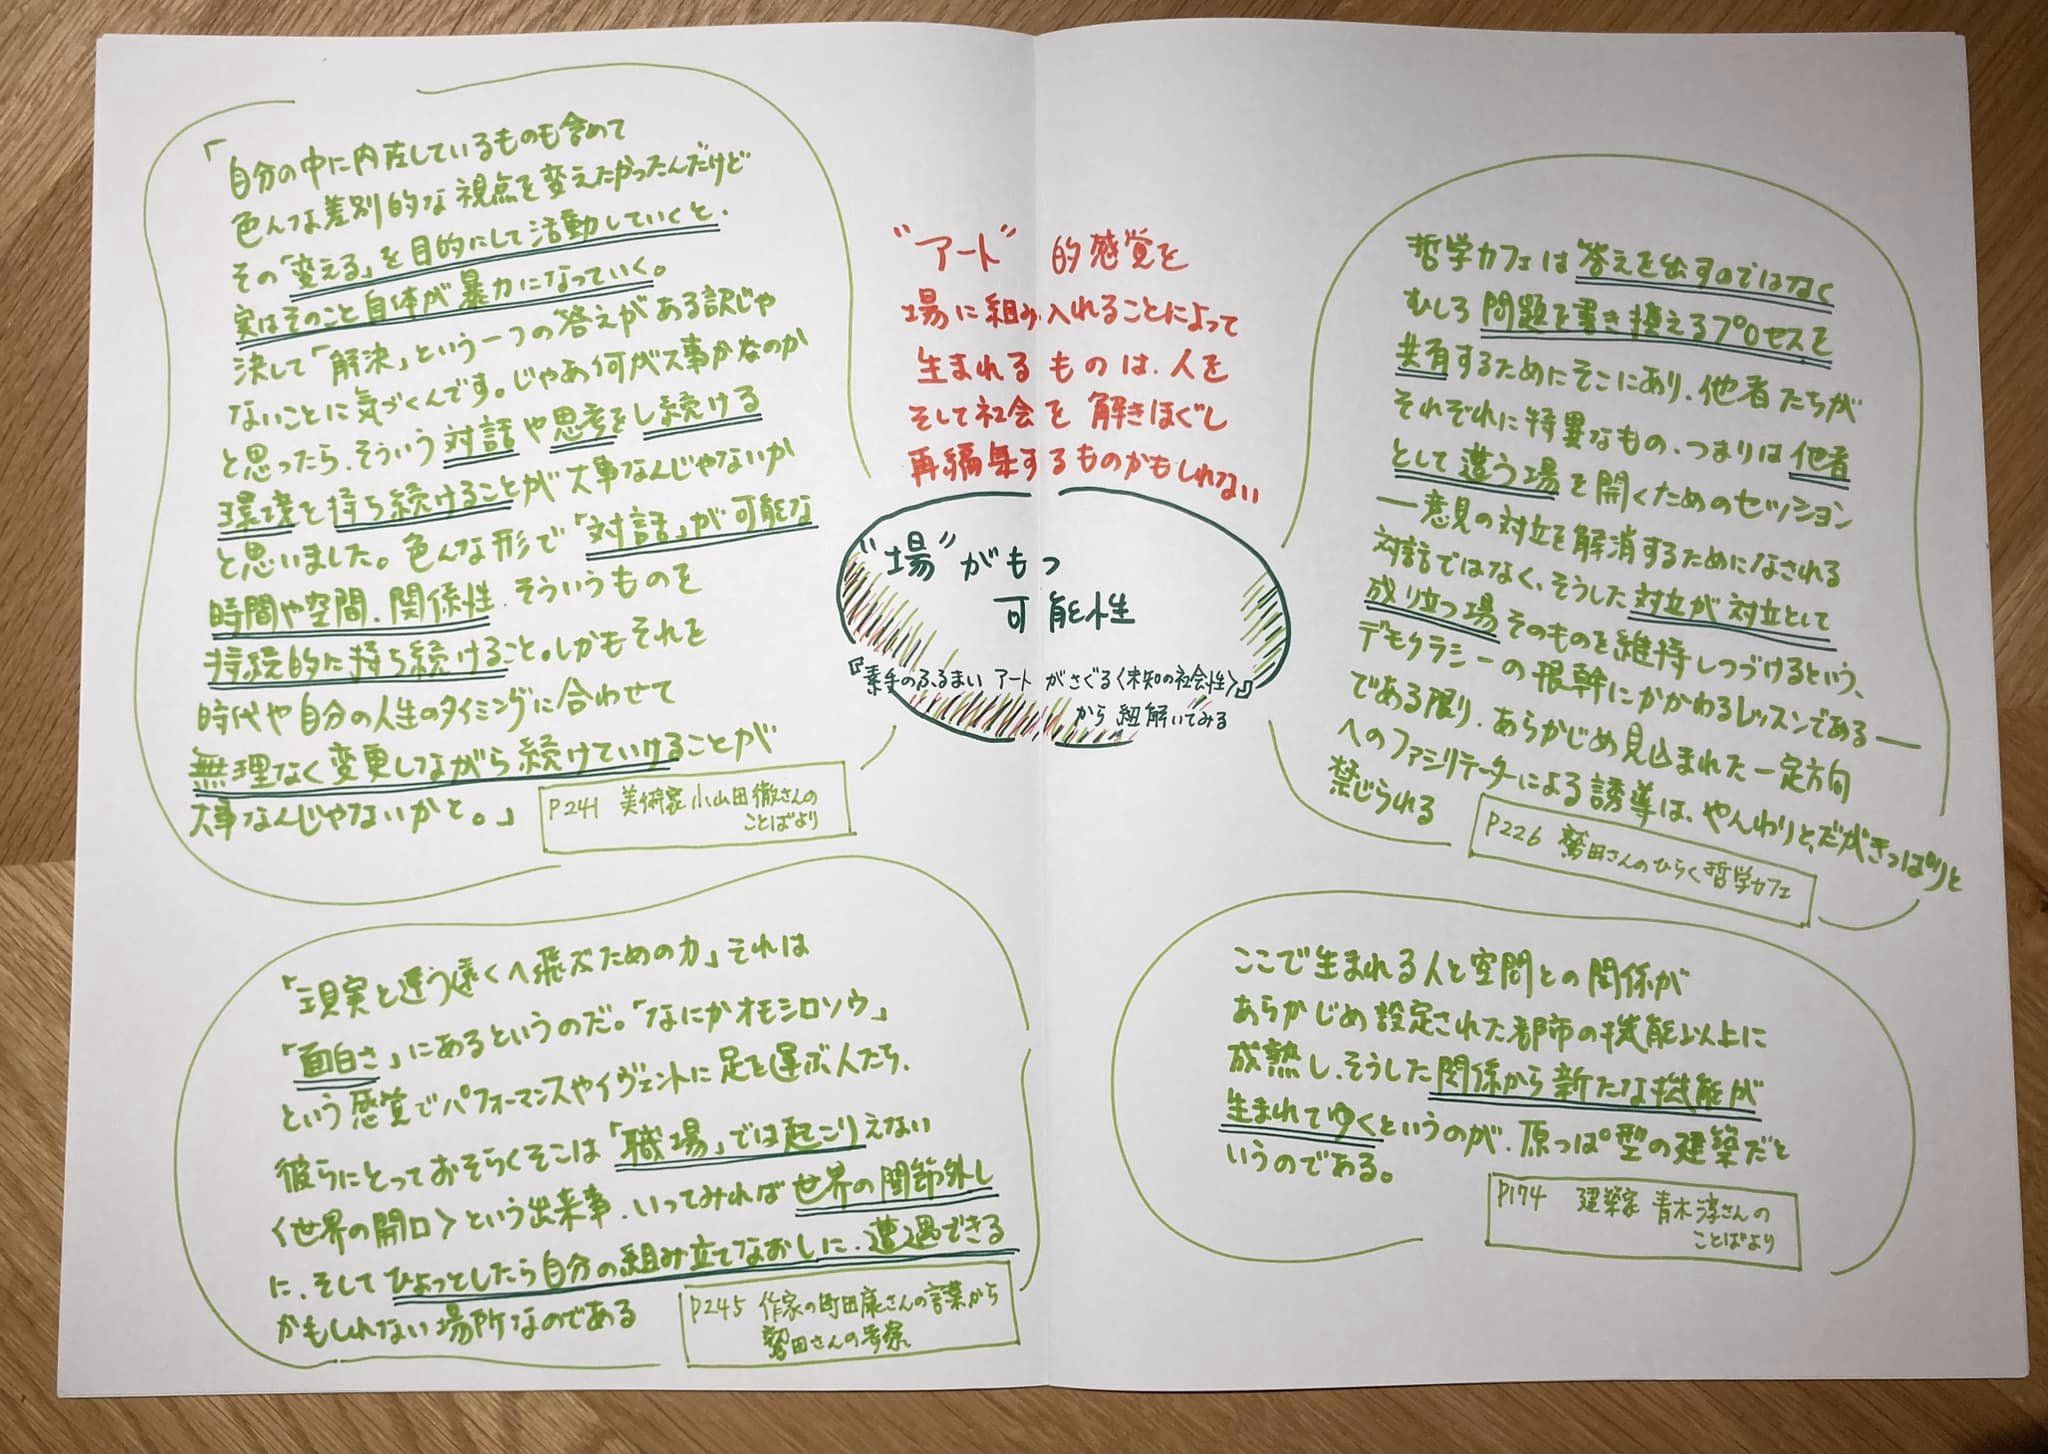 「自分の中に内在しているものも含めて
色んな差別的な視点を変えたかったんだけど
その「変える」を目的にして活動していくと、
実はそのこと自体が暴力になっていく。
決して「解決」という一つの答えがある訳じゃ
ないことに気づくんです。じゃあ何が大事かなのか
と思ったら、そういう対話や思考をし続ける
環境を持ち続けることが大事なんじゃないか
と思いました。色んな形で「対話」が可能な
時間や空間、関係性、そういうものを
持続的に持ち続けること。しかもそれを
時代や自分の人生のタイミングに合わせて
無理なく変更しながら続けていけることが
大事なんじゃないかと。」
P241 美術家 小山田徹さんの
ことばより
「現実と違う遠くへ飛ぶための力」それは
「面白さ」にあるというのだ。「なにかオモシロソウ」
という感覚でパフォーマンスやイヴェントに足を運ぶ人たち、
彼らにとっておそらくそこは「職場」では起こりえない
〈世界の開口〉という出来事、いってみれば世界の関節外し
に、そしてひょっとしたら自分の組み立てなおしに、遭遇できる
かもしれない場所なのである
P245 作家の町田康さんの言葉から
鷲田さんの考察
"アート"的感覚を
場に組み入れることによって
生まれるものは、人を
そして社会を解きほぐし
再編集するものかもしれない
"場"がもつ
可能性
『素手のふるまい アートがさぐる〈未知の社会性〉』
から紐解いてみる
哲学カフェは答えを出すのではなく
むしろ問題を書き換えるプロセスを
共有するためにそこにあり、他者たちが
それぞれに特異なもの、つまりは他者
として違う場を開くためのセッション
―意見の対立を解消するためになされる
対話ではなく、そうした対立が対立として
成り立つ場そのものを維持しつづけるという、
デモクラシーの根幹にかかわるレッスンである―
である限り、あらかじめ見込まれた一定方向
へのファシリテーターによる誘導は、やんわりと、だがきっぱりと
禁じられる
P226 鷲田さんのひらく哲学カフェ
ここで生まれる人と空間との関係が
あらかじめ設定された都市の機能以上に
成熟し、そうした関係から新たな機能が
生まれてゆくというのが、原っぱ型の建築だと
いうのである。
P174 建築家 青木淳さんの
ことばより